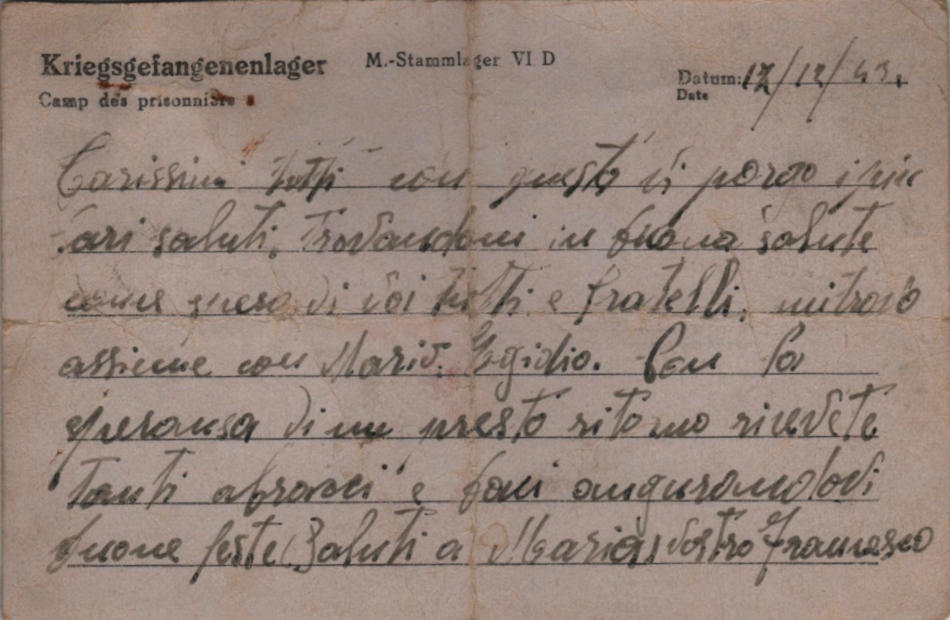 Kriegsgefangenenlager M.-Stammlager VI D Datum: 12/12/43.
Camp des prisonniers Date
Carissimi tutti con questo vi porgo i piu
cari saluti, trovandomi in buona salute
come spero di voi tutti e fratelli, mitrovo
assieme con Mario. Egidio. Con la
speransa di un presto ritorno ricevete
tanti abracci e baci augurandovi
buone feste Saluti a Maria, vostro Francesco